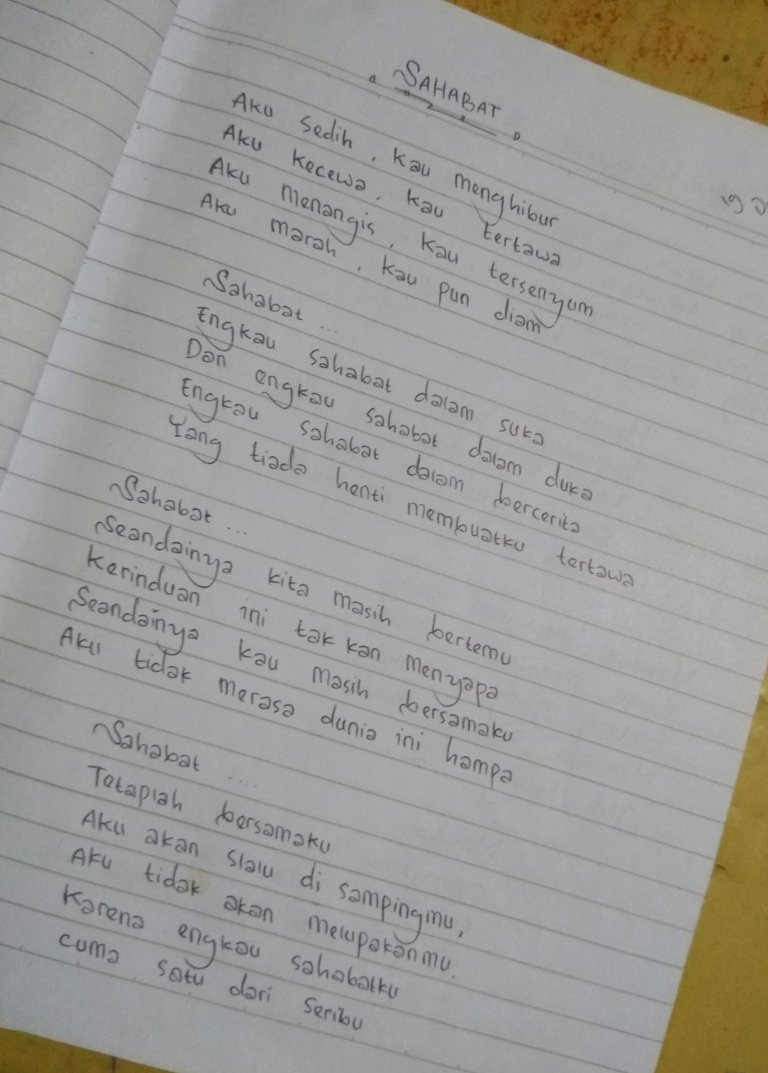 SAHABAT
Aku sedih, kau menghibur
Aku kecewa, kau tertawa
Aku menangis, kau tersenyum
Aku marah, kau pun diam
Sahabat ...
Engkau sahabat dalam suka
Dan engkau sahabat dalam duka
Engkau sahabat dalam bercerita
Yang tiada henti membuatku tertawa
Sahabat ...
Seandainya kita masih bertemu
Kerinduan ini tak kan menyapa
Seandainya kau masih bersamaku
Aku tidak merasa dunia ini hampa
Sahabat ....
Tetaplah bersamaku
Aku akan slalu di sampingmu,
Aku tidak akan melupakanmu.
Karena engkau sahabatku
cuma satu dari seribu